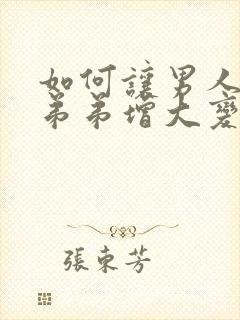 如何讓男人
弟弟增大變
張東芳